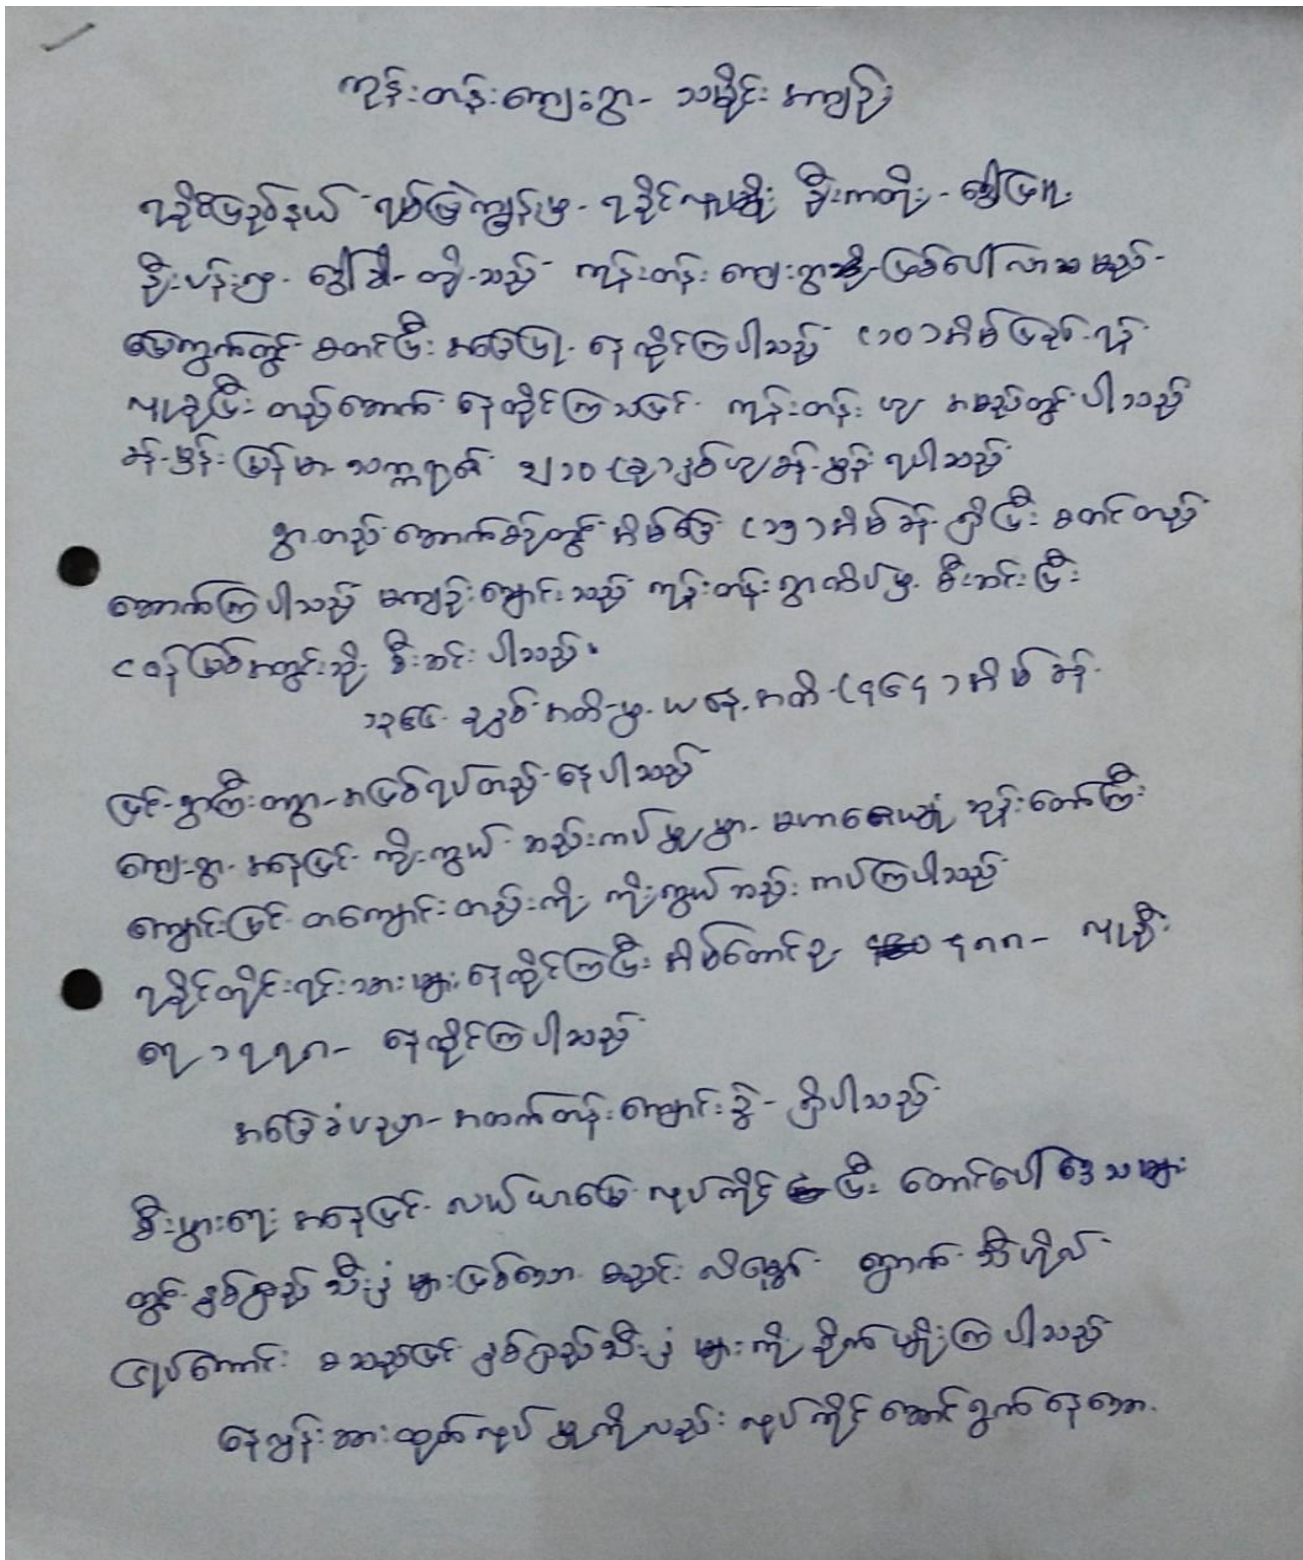 ကုန်းတန်းကျေးရွာ - သမိုင်း အကျဉ်း
ရခိုင်ပြည်နယ် ရမ်းဗြဲကျွန်းမှ - ရခိုင်လူမျိုး ဦးကတိုး - ဒေါ်ဖြူ
ဦးပန်းညှာ - ဒေါ် - တို့သည် ကုန်းတန်း ကျေးရွာဖြစ်ပေါ်လာမည်
မြေကွက်တွင် စတင်ပြီး အခြေပြု နေထိုင်ကြပါသည် (၁၀) အိမ်ပြည့်ရန်
လူစုပြီး တည်ဆောက် နေထိုင်ကြသဖြင့် ကုန်းတန်း ဟူ အမည်တွင်ပါသည်
ခန့်မှန်း မြန်မာ သက္ကရာဇ် ၁၂၁၀ ခုနှစ်ဟု ခန့်မှန်းရပါသည်
ရွာတည်ဆောက်စဉ်တွင် အိမ်ခြေ (၁၅) အိမ်ခန့် ရှိပြီး စတင်တည်
ဆောက်ကြပါသည် မကျဉ်းချောင်းသည် ကုန်းတန်းရွာထိပ်မှ စီးဆင်းပြီး
ငဝန်မြစ်အတွင်းသို့ စီးဆင်းပါသည်။
၁၃၆၄ ခုနှစ် အထိ မှ ယနေ့ အထိ (၄၆၄) အိမ်ခန့်
ဖြင့် ရွာကြီးတရွာ - အဖြစ်ရပ်တည်နေပါသည်
ကျေးရွာ အနေဖြင့် ကိုးကွယ် ဆည်းကပ်မှုမှာ - မဟာစေယျ ဘုန်းတော်ကြီး
ကျောင်းဖြင့် တကျောင်းတည်းကို ကိုးကွယ်ဆည်းကပ်ကြပါသည်
ရခိုင်တိုင်းရင်းသားများ နေထိုင်ကြပြီး အိမ်ထောင်စု ၄၈၈ - လူဦး
ရေ ၁၇၇၈ - နေထိုင်ကြပါသည်
အခြေခံပညာ - အထက်တန်းကျောင်းခွဲ - ရှိပါသည်
စီးပွားရေး အနေဖြင့် လယ်ယာမြေ လုပ်ကိုင်ပြီး တောင်ပေါ်ဒေသများ
တွင် နှစ်ရှည် သီးနှံများဖြစ်သော မညင်း လိမ္မော် ကွာက် သီဟိုဠ်
ငှုပ်ကောင်း စသည်ဖြင့် နှစ်ရှည်သီးနှံများကို စိုက်ပျိုးကြပါသည်
နေလှန်းဆားထုတ်လုပ်မှုကိုလည်း လုပ်ကိုင်ဆောင်ရွက်နေသော